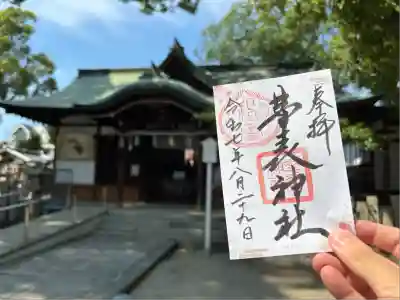 奉拝
華表神社
令和七年八月二十九日